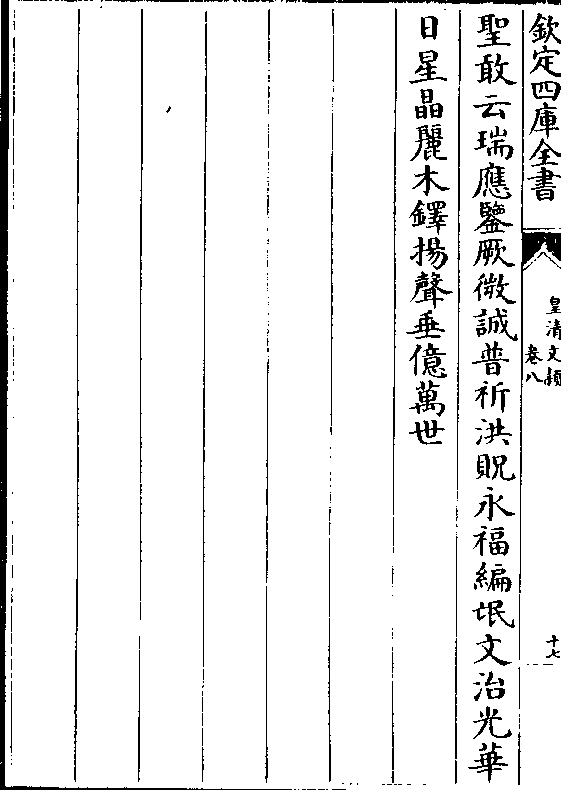 欽定四庫全書
皇清文頴
卷八
十七
聖敢云瑞應鑒厥微誠普祈洪貺永福編氓文治光華
日星晶麗木鐸揚聲垂億萬世